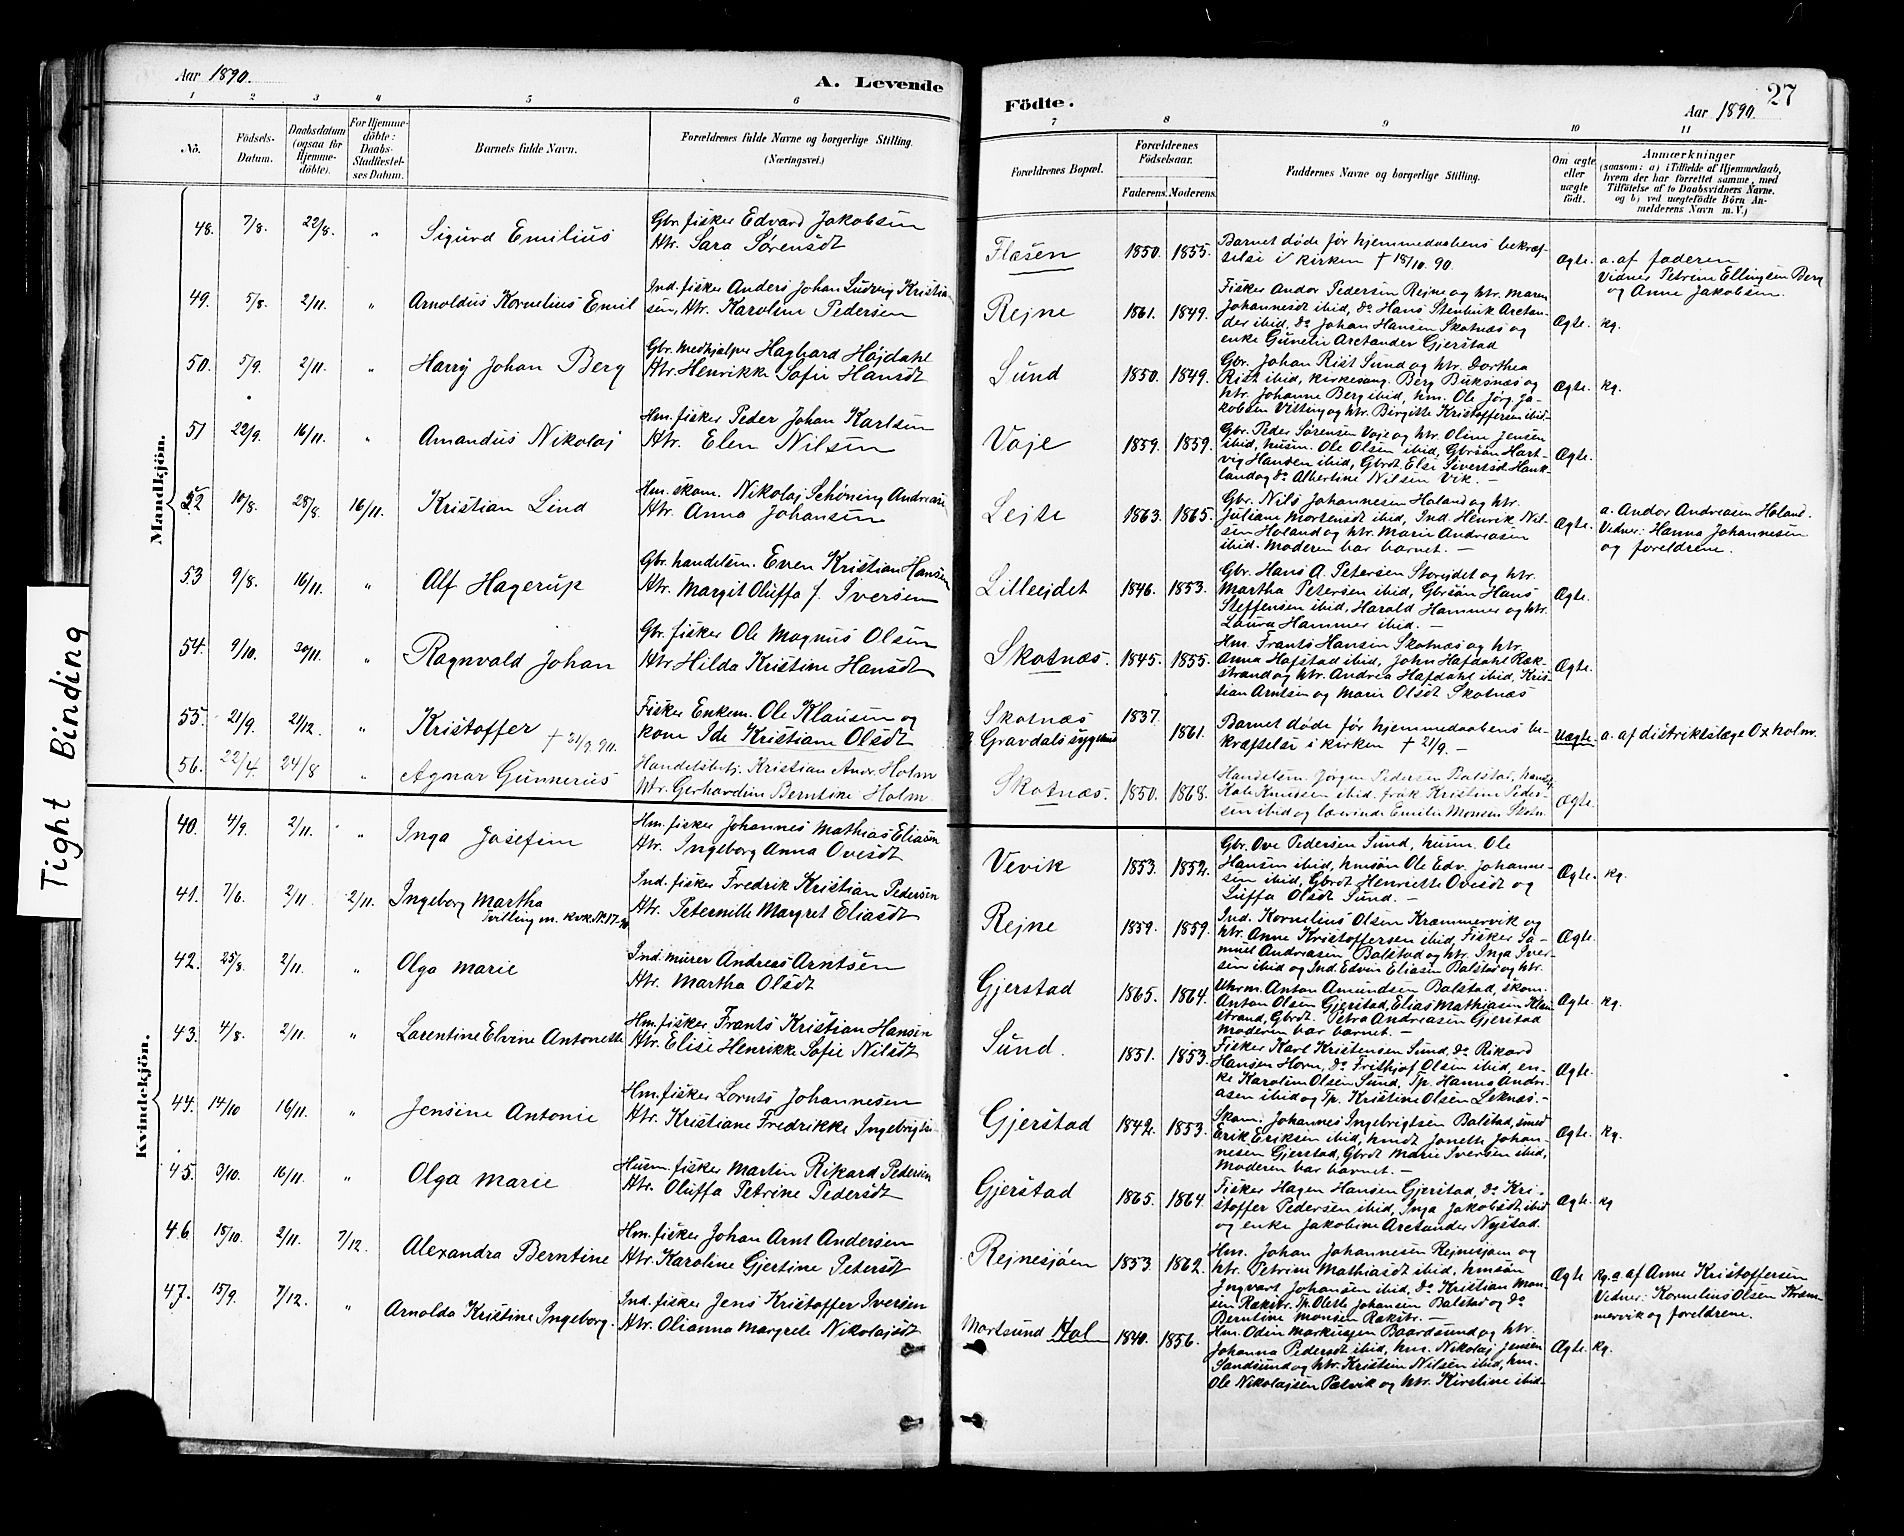 Aar 1890.
A. Levende
Födte.
27
Aar 1890.
1 2 3 4 5 6 7 8 9 10 11
No.
Födsels-Datum.
Daabsdatum (ogsaa for Hjemme-döbte).
For Hjemme-döbte: Daabs-Stadfæstel-ses Datum.
Barnets fulde Navn.
Forældrenes fulde Navne og borgerlige Stilling. (Næringsvei.)
Forældrenes Bopæl.
Forældrenes Födselsaar.
Faderens. Moderens.
Faddernes Navne og borgerlige Stilling.
Om ægte eller uægte födt.
Anmærkninger
(saasom: a) i Tilfælde af Hjemmedaab, hvem der har forrettet samme, med Tilföielse af to Daabsvidners Navne, og b) ved uægtefödte Börn An-melderens Navn m. V.)
Tight Binding
Mandkjön.
48. 7/8. 22/8. " Sigurd Emilius
Gbr. fisker Edvard Jakobsen
Htr. Sara Sørensdt
Flæsen 1850. 1855.
Barnet døde før hjemmedaabens bekræf-
telse i kirken † 18/10. 90.
Ægte. a. af faderen
Vidner Petrine Ellingsen Berg
og Anne Jakobsen.
49. 5/8. 2/11. " Arnoldus Kornelius Emil
Ind. fisker Anders Johan Ludvig Kristian
sen, Htr. Karoline Pedersen
Rejne 1861. 1849.
Fisker Andor Pedersen Rejne og htr. Maren
Johannesdt ibid, do Hans Stenbuk Arctan-
der ibid, do Johan Hansen Skotnæs og
enke Gunelie Arctander Gjerstad
Ægte. kg.
50. 5/9. 2/11. " Harry Johan Berg
Gbr. medhjelper Hagbard Højdahl
Htr. Henrikke Sofie Hansdt
Sund 1850. 1849.
Gbr. Johan Rist Sund og htr. Dorthea
Rist ibid, kirkesang. Berg Buksnæs og
htr. Johanne Berg ibid, hm. Ole Jørg. Ja-
kobsen Vitting og htr. Birgitte Kristoffersen ibid
Ægte. kg.
51 22/9. 16/11. " Amandus Nikolaj
Hm. fisker Peder Johan Karlsen
Htr. Elen Nilsen
Voje 1859. 1859.
Gbr. Peder Sørensen Voje og htr. Oline Jensen
ibid, husm. Ole Olsen ibid, Gbrsøn Hart-
vig Hansen ibid, Gbrdt. Else Sivertsdt Hauk-
land og do Albertine Nilsen Vik. -
Ægte.
52 10/8. 28/8. 16/11. Kristian Lind
Hm. skom. Nikolaj Schøning Andreasen
Htr. Anna Johansen
Lejte 1863. 1865.
Gbr. Nils Johannesen Holand og htr.
Juliane Mortensdt ibid, Ind. Henrik Nil-
sen Holand og htr. Marie Andreasen
ibid. Moderen bar barnet. -
Ægte. a. Andor Andreasen Holand.
Vidner: Hanna Johannesen
og foreldrene.
53 9/8. 16/11. " Alf Hagerup
Gbr. handelsm. Even Kristian Hansen
Htr. Margit Oluffa J. Iversen
Lilleejdet 1846. 1853.
Gbr. Hans A. Petersen Storejdet og htr.
Martha Petersen ibid, Gbrsøn Hans
Steffensen ibid, Harald Hammer og htr.
Laura Hammer ibid. -
Ægte.
54. 9/10. 30/11. " Ragnvald Johan
Gbr. fisker Ole Magnus Olsen
Htr Hilda Kristine Hansdt
Skotnæs. 1845. 1855.
Hm. Frants Hansen Skotnæs og htr.
Anna Hafstad ibid, John Hafdahl Ræk-
strand og htr. Andrea Hafdahl ibid, Kris-
tian Arntsen og Marie Olsdt Skotnæs
Ægte.
55. 21/9. 21/12. " Kristoffer † 21/9 90.
Fisker Enkem. Ole Klausen og
kone Ide Kristiane Olsdt
Skotnæs
Gravdals sygehus 1837. 1861.
Barnet døde før hjemmedaabens be-
kræftelse i kirken † 21/9. -
Uægte a. af distriktslæge Oxholm.
56. 22/4. 24/8 " Agnar Gunnerius
Handelsbetj. Kristian Andr. Holm
htr. Gerhardine Berntine Holm.
Skotnæs. 1850. 1868.
Handelsm. Jørgen Pedersen Balstad,
Kate Knudsen ibid. frøk Kristine Peder-
sen ibid og lærerinde Emilie Monsen Skotn.
Ægte.
Kvindekjön.
40. 4/9. 2/11. " Inga Josefine
Hm. fisker Johannes Mathias Eliasen
Htr. Ingeborg Anna Ovesdt
Vevik 1853. 1852.
Gbr. Ove Pedersen Sund, husm. Ole
Hansen ibid, hmsøn Ole Edv. Johanne-
sen ibid, Gbrdt Henriette Ovesdt og
Luffa Olsdt Sund. -
Ægte. kg.
41. 7/6. 2/11. 2/11. Ingeborg Martha
Tvilling m. kvk. No. 17-90
Ind. fisker Fredrik Kristian Pedersen
Htr. Peternille Margret Eliasdt
Rejne 1859. 1859.
Ind. Kornelius Olsen Kræmmervik og
htr. Anne Kristoffersen ibid, Fisker Sa-
muel Andreasen Balstad og htr. Inga Iver-
sen ibid og Ind. Edvin Eliasen Balstad og htr.
Ægte.
42. 25/8. 2/11. " Olga Marie
Ind. murer Andreas Arntsen
Htr. Martha Olsdt
Gjerstad 1865. 1864.
Uhrm. Anton Amundsen Balstad, skom.
Anton Olsen Gjerstad, Elias Mathiasen
strand, Gbrdt. Petra Andreasen Gjerstad
Moderen bar barnet. -
Ægte. kg.
43. 4/8. 2/11. " Larentine Elvine Antonette
Hm. fisker. Frants Kristian Hansen
Htr. Elise Henrikke Sofie Nilsdt
Sund. 1851. 1853.
Fisker Karl Kristensen Sund, do Rikard
Hansen Horn, do Frithjof Olsen ibid, en-
ke Karoline Olsen Sund, Tp. Hanna Andre-
asen ibid og Tp. Kristine Olsen Leknes. -
Ægte.
44. 14/10 16/11. " Jensine Antonie
Hm. fisker Lornts Johannesen
Htr. Kristiane Fredrikke Ingebrigts-
Gjerstad 1842. 1853.
Skom. Johannes Ingebrigtsen Balstad, smed
Erik Eriksen ibid, hmdt Jonette Johan-
nesen Gjerstad, Gbrdt Marie Iversen ibid,
Moderen bar barnet. -
Ægte. kg.
45. 3/10. 16/11. " Olga Marie
Husm. fisker Martin Rikard Pedersen
Htr. Oluffa Petrine Pedersdt
Gjerstad 1865. 1864
Fisker Hagen Hansen Gjerstad, do Kri-
stoffer Pedersen ibid, Inga Jakobsdt ibid
og enke Jakobine Arctander Nystad.
Ægte. kg
46 18/10. 2/11. 7/12. Alexandra Berntine
Hm. fisker Johan Arnt Andersen
Htr. Karoline Gjertine Petersdt
Rejnesjøen 1853. 1862.
Hm. Johan Johannesen Rejnesjøen og
htr. Petrine Mathiasdt ibid, hmsøn
Ingvart Johansen ibid, do Kristian Mon-
sen Rækstr. Tp. Olette Johansen Balstad og do
Berntine Monsen Rækstr. -
Ægte kg. a. af Anne Kristoffersen
Vidner: Kornelius Olsen Kræm-
mervik og foreldrene.
47. 15/9. 7/12. " Arnolda Kristine Ingeborg.
Ind. fisker Jens Kristoffer Iversen
Htr. Olianna Margrete Nikolajsdt
Mortsund Hol 1840. 1856.
Hm. Odin Markussen Baardsund og htr.
Johanna Pedersdt ibid, hm. Nikolaj Jensen
Sandsund og htr. Kristin Nilsen ibid, hm.
Ole Nikolajsen Pælvik og htr. Kirstine ibid-
Ægte. kg.